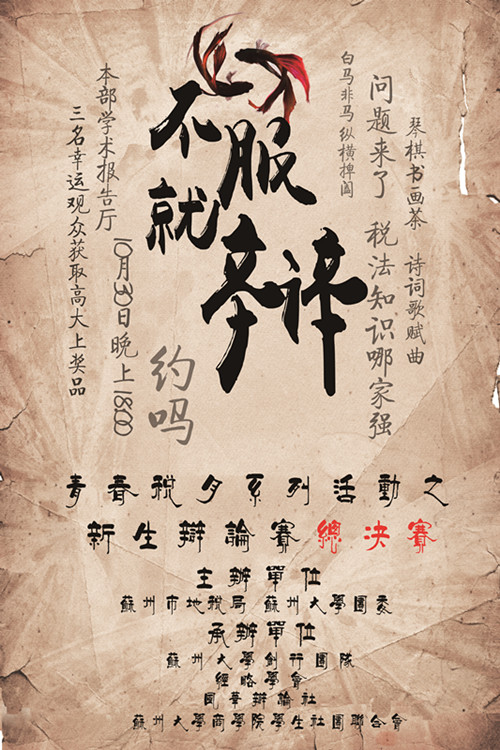 琴棋书画茶 诗词歌赋曲
问题来了 税法知识哪家强
白马非马纵横捭阖
不服
就辩
约吗
本部学术报告厅 10月30日晚上18:00
三名幸运观众获取高大上奖品
青春稅月系列活動之
新生辯論賽總決賽
主辦單位
蘇州市地稅局 蘇州大學團委
承辦單位
蘇州大學創行團隊
經略學會
華辯論社
蘇州大學商學院學生社團聯合會